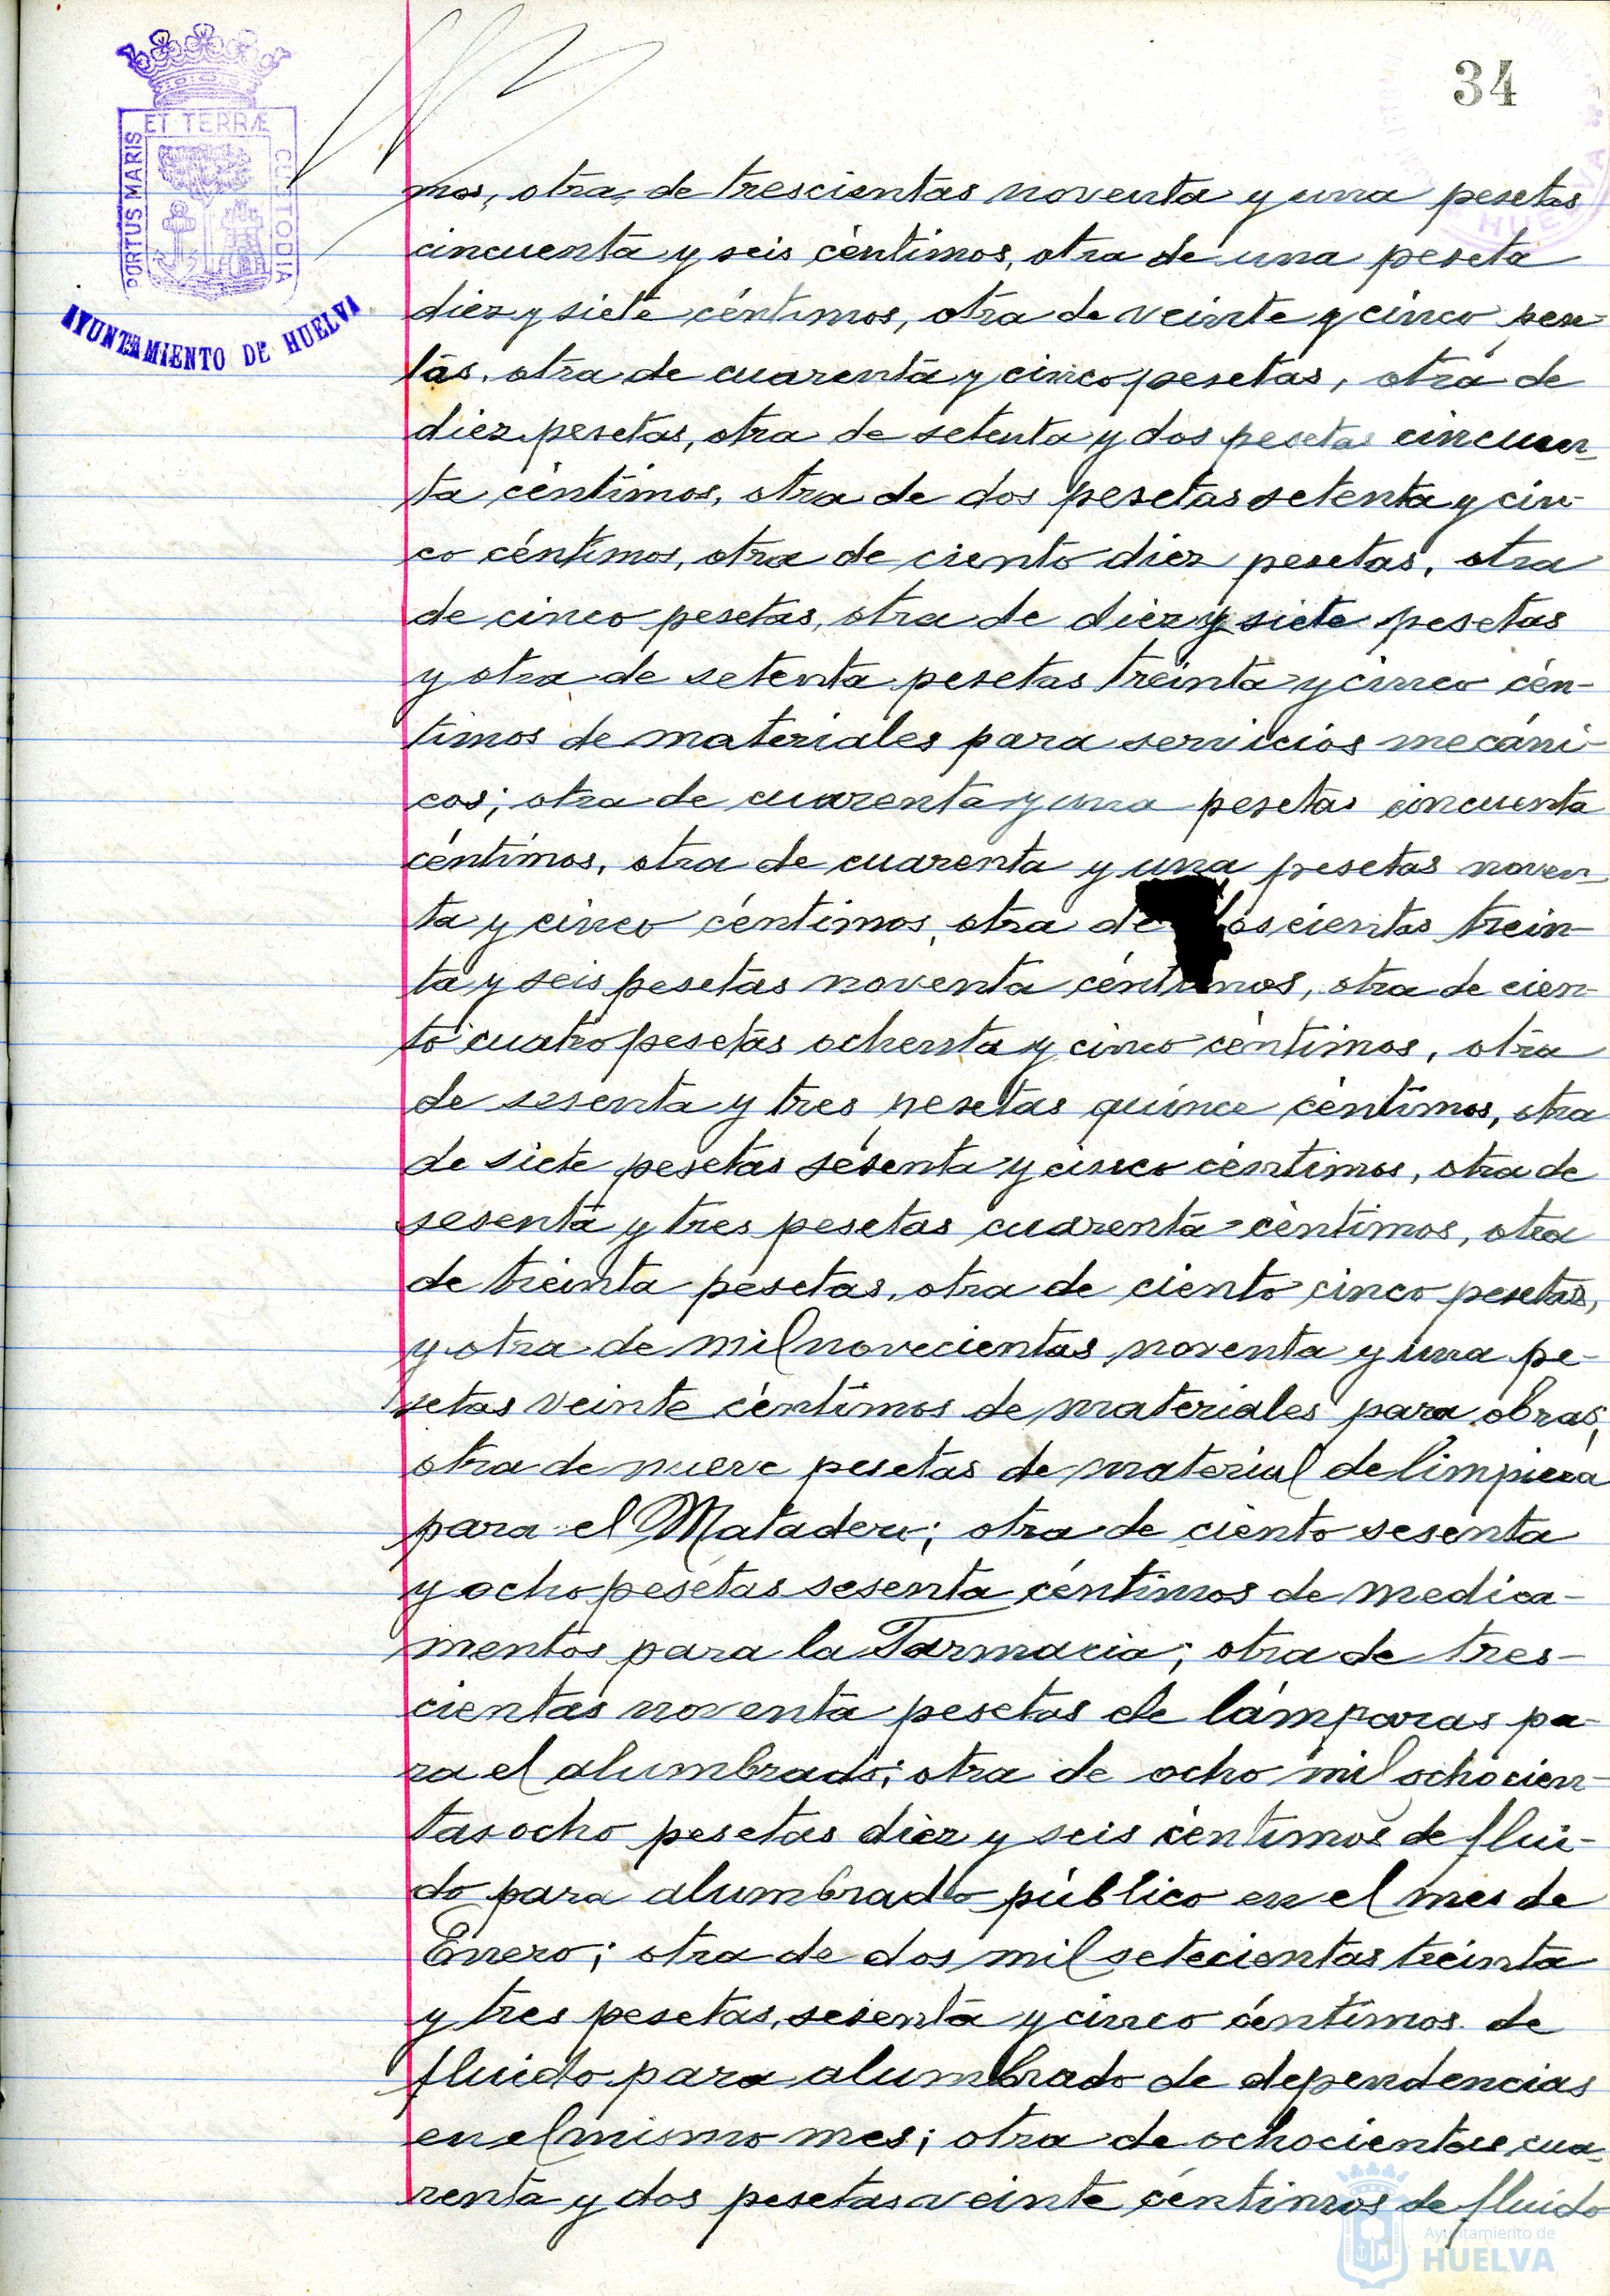 34
ET TERRÆ
PORTUS MARIS
CUSTODIA
AYUNTAMIENTO DE HUELVA
HUELVA
mos, otra, de trescientas noventa y una pesetas
cincuenta y seis céntimos, otra de una peseta
diez y siete céntimos, otra de veinte y cinco pese-
tas, otra de cuarenta y cinco pesetas, otra de
diez pesetas, otra de setenta y dos pesetas cincuen-
ta céntimos, otra de dos pesetas setenta y cin-
co céntimos, otra de ciento diez pesetas, otra
de cinco pesetas, otra de diez y siete pesetas
y otra de setenta pesetas treinta y cinco cén-
timos de materiales para servicios mecáni-
cos; otra de cuarenta y una pesetas cincuenta
céntimos, otra de cuarenta y una pesetas noven-
ta y cinco céntimos, otra de doscientas trein-
ta y seis pesetas noventa céntimos, otra de cien-
to cuatro pesetas ochenta y cinco céntimos, otra
de sesenta y tres pesetas quince céntimos, otra
de siete pesetas sesenta y cinco céntimos, otra de
sesenta y tres pesetas cuarenta céntimos, otra
de treinta pesetas, otra de ciento cinco pesetas,
y otra de mil novecientas noventa y una pe-
setas veinte céntimos de materiales para obras;
otra de nueve pesetas de material de limpieza
para el Matadero; otra de ciento sesenta
y ocho pesetas sesenta céntimos de medica-
mentos para la Farmacia; otra de tres-
cientas noventa pesetas de lámparas pa-
ra el alumbrado; otra de ocho mil ochocien-
tas ocho pesetas diez y seis céntimos de flúi-
do para alumbrado público en el mes de
Enero; otra de dos mil setecientas treinta
y tres pesetas, sesenta y cinco céntimos de
fluido para alumbrado de dependencias
en el mismo mes; otra de ochocientas cua-
renta y dos pesetas veinte céntimos de fluido
Ayuntamiento de
HUELVA